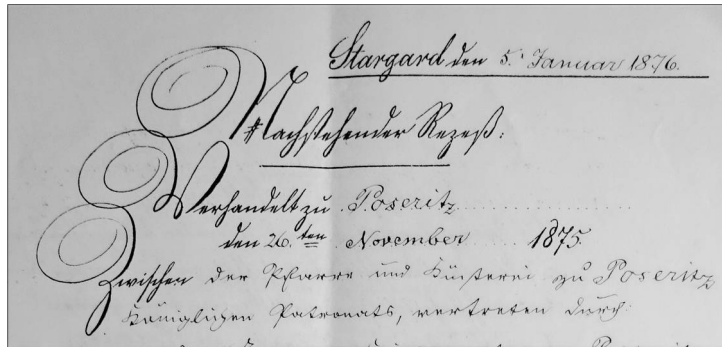 Stargard den 5. Januar 1876.
Nachstehender Rezeß:
Verhandelt zu Poseritz
den 26.ten November 1875.
Zwischen der Pfarre und Küsterei zu Poseritz
Königlichen Patronats, vertreten durch: